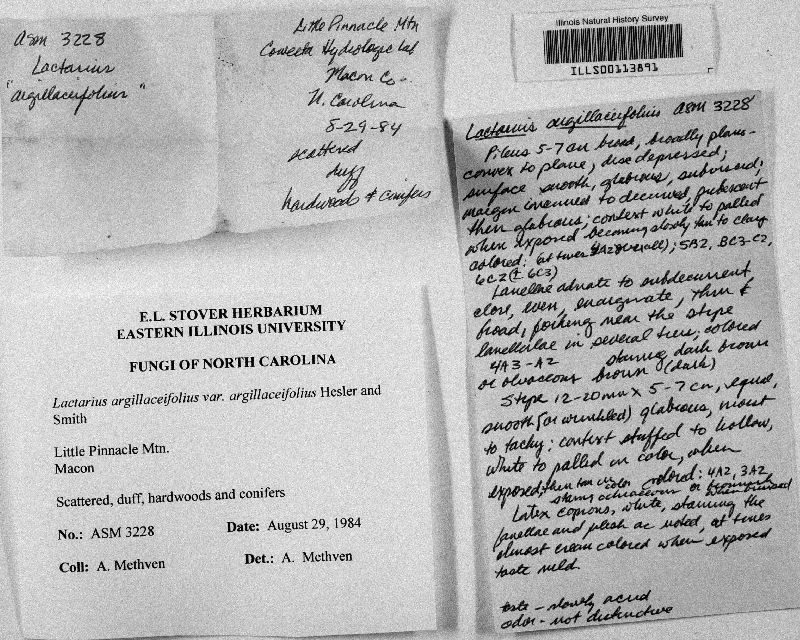 ASM 3228
Lactarius
"argillaceifolius"
Little Pinnacle Mtn
Coweeta Hydrologic Lab
Macon Co.
N. Carolina
8-29-84
scattered
duff
hardwoods & conifers
Illinois Natural History Survey
ILLS00113891
E.L. STOVER HERBARIUM
EASTERN ILLINOIS UNIVERSITY
FUNGI OF NORTH CAROLINA
Lactarius argillaceifolius var. argillaceifolius Hesler and
Smith
Little Pinnacle Mtn.
Macon
Scattered, duff, hardwoods and conifers
No.: ASM 3228 Date: August 29, 1984
Coll: A. Methven Det.: A. Methven
Lactarius argillaceifolius ASM 3228
Pileus 5-7 cm broad, broadly plano-
convex to plane, disc depressed;
surface smooth, glabrous, subviscid;
margin incurved to decurved, pubescent
then glabrous; context white to pallid
when exposed becoming slowly tan to clay
colored: (at times overall); 5B2, BC3-C2,
6C2 (± 6C3)
Lamellae adnate to subdecurrent,
close, even, emarginate, thin &
broad, forking near the stipe
lamellulae in several tiers; colored
4A3-A2 staining dark brown
or olivaceous brown (dark)
Stipe 12-20mm x 5-7 cm, equal,
smooth (or wrinkled) glabrous, moist
to tacky; context stuffed to hollow,
white to pallid in color, when
exposed; then tan in color colored: 4A2, 3A2
staining ochraceous or brownish when bruised
Latex copious, white, staining the
lamellae and flesh as noted, at times
almost cream colored when exposed
taste mild.
taste - slowly acrid
odor - not distinctive